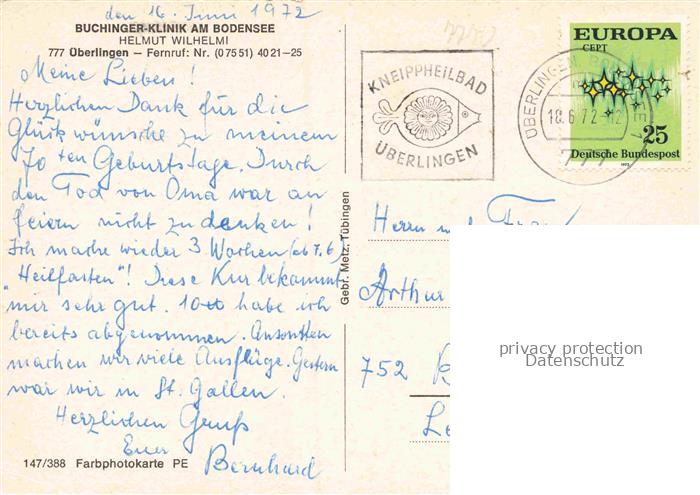 den 16. Juni 1972
BUCHINGER-KLINIK AM BODENSEE
HELMUT WILHELMI
777 Überlingen – Fernruf: Nr. (07551) 4021-25
Meine Lieben!
Herzlichen Dank für die
Glückwünsche zu meinem
70 ten Geburtstage. Durch
den Tod von Oma war an
feiern nicht zu denken!
Ich mache wieder 3 Wochen (ab 7.6)
"Heilfasten"! Diese Kur bekommt
mir sehr gut. 10 habe ich
bereits abgenommen. Ansonsten
machen wir viele Ausflüge. Gestern
war wir in St. Gallen.
Herzlichen Gruß
Euer
Bernhard
147/388 Farbphotokarte PE
Gebr. Metz, Tübingen
KNEIPPHEILBAD
ÜBERLINGEN
ÜBERLINGEN, BOD
18.6.72-12
777
EUROPA
CEPT
25
Deutsche Bundespost
1972
Herrn und Frau
Arthur
752
privacy protection
Datenschutz